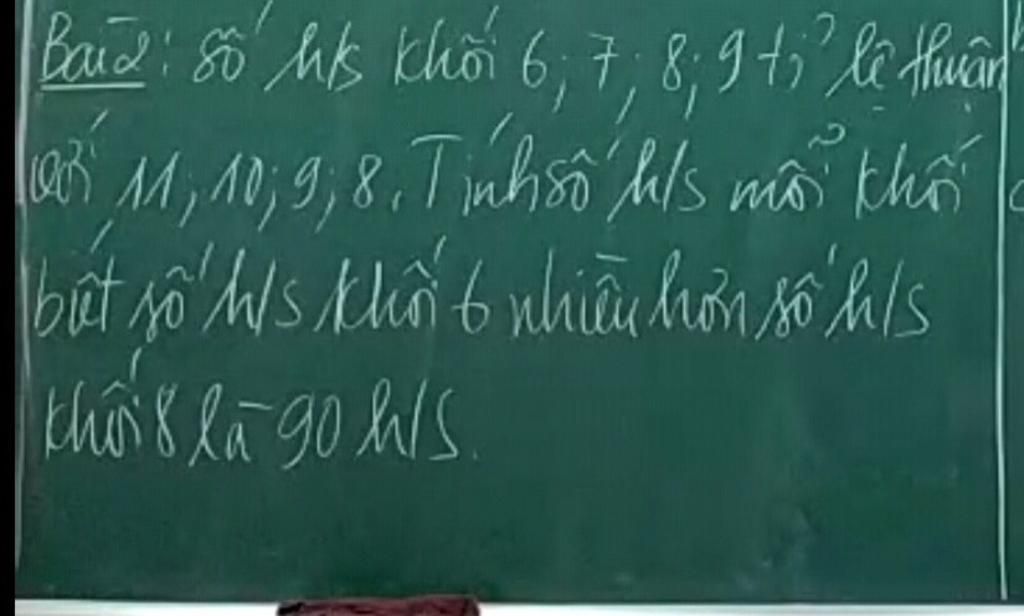 Bài 2: Số h/s khối 6; 7; 8; 9 tỉ lệ thuận
với 11; 10; 9; 8. Tính số h/s mỗi khối
biết số h/s khối 6 nhiều hơn số h/s
khối 8 là 90 h/s.